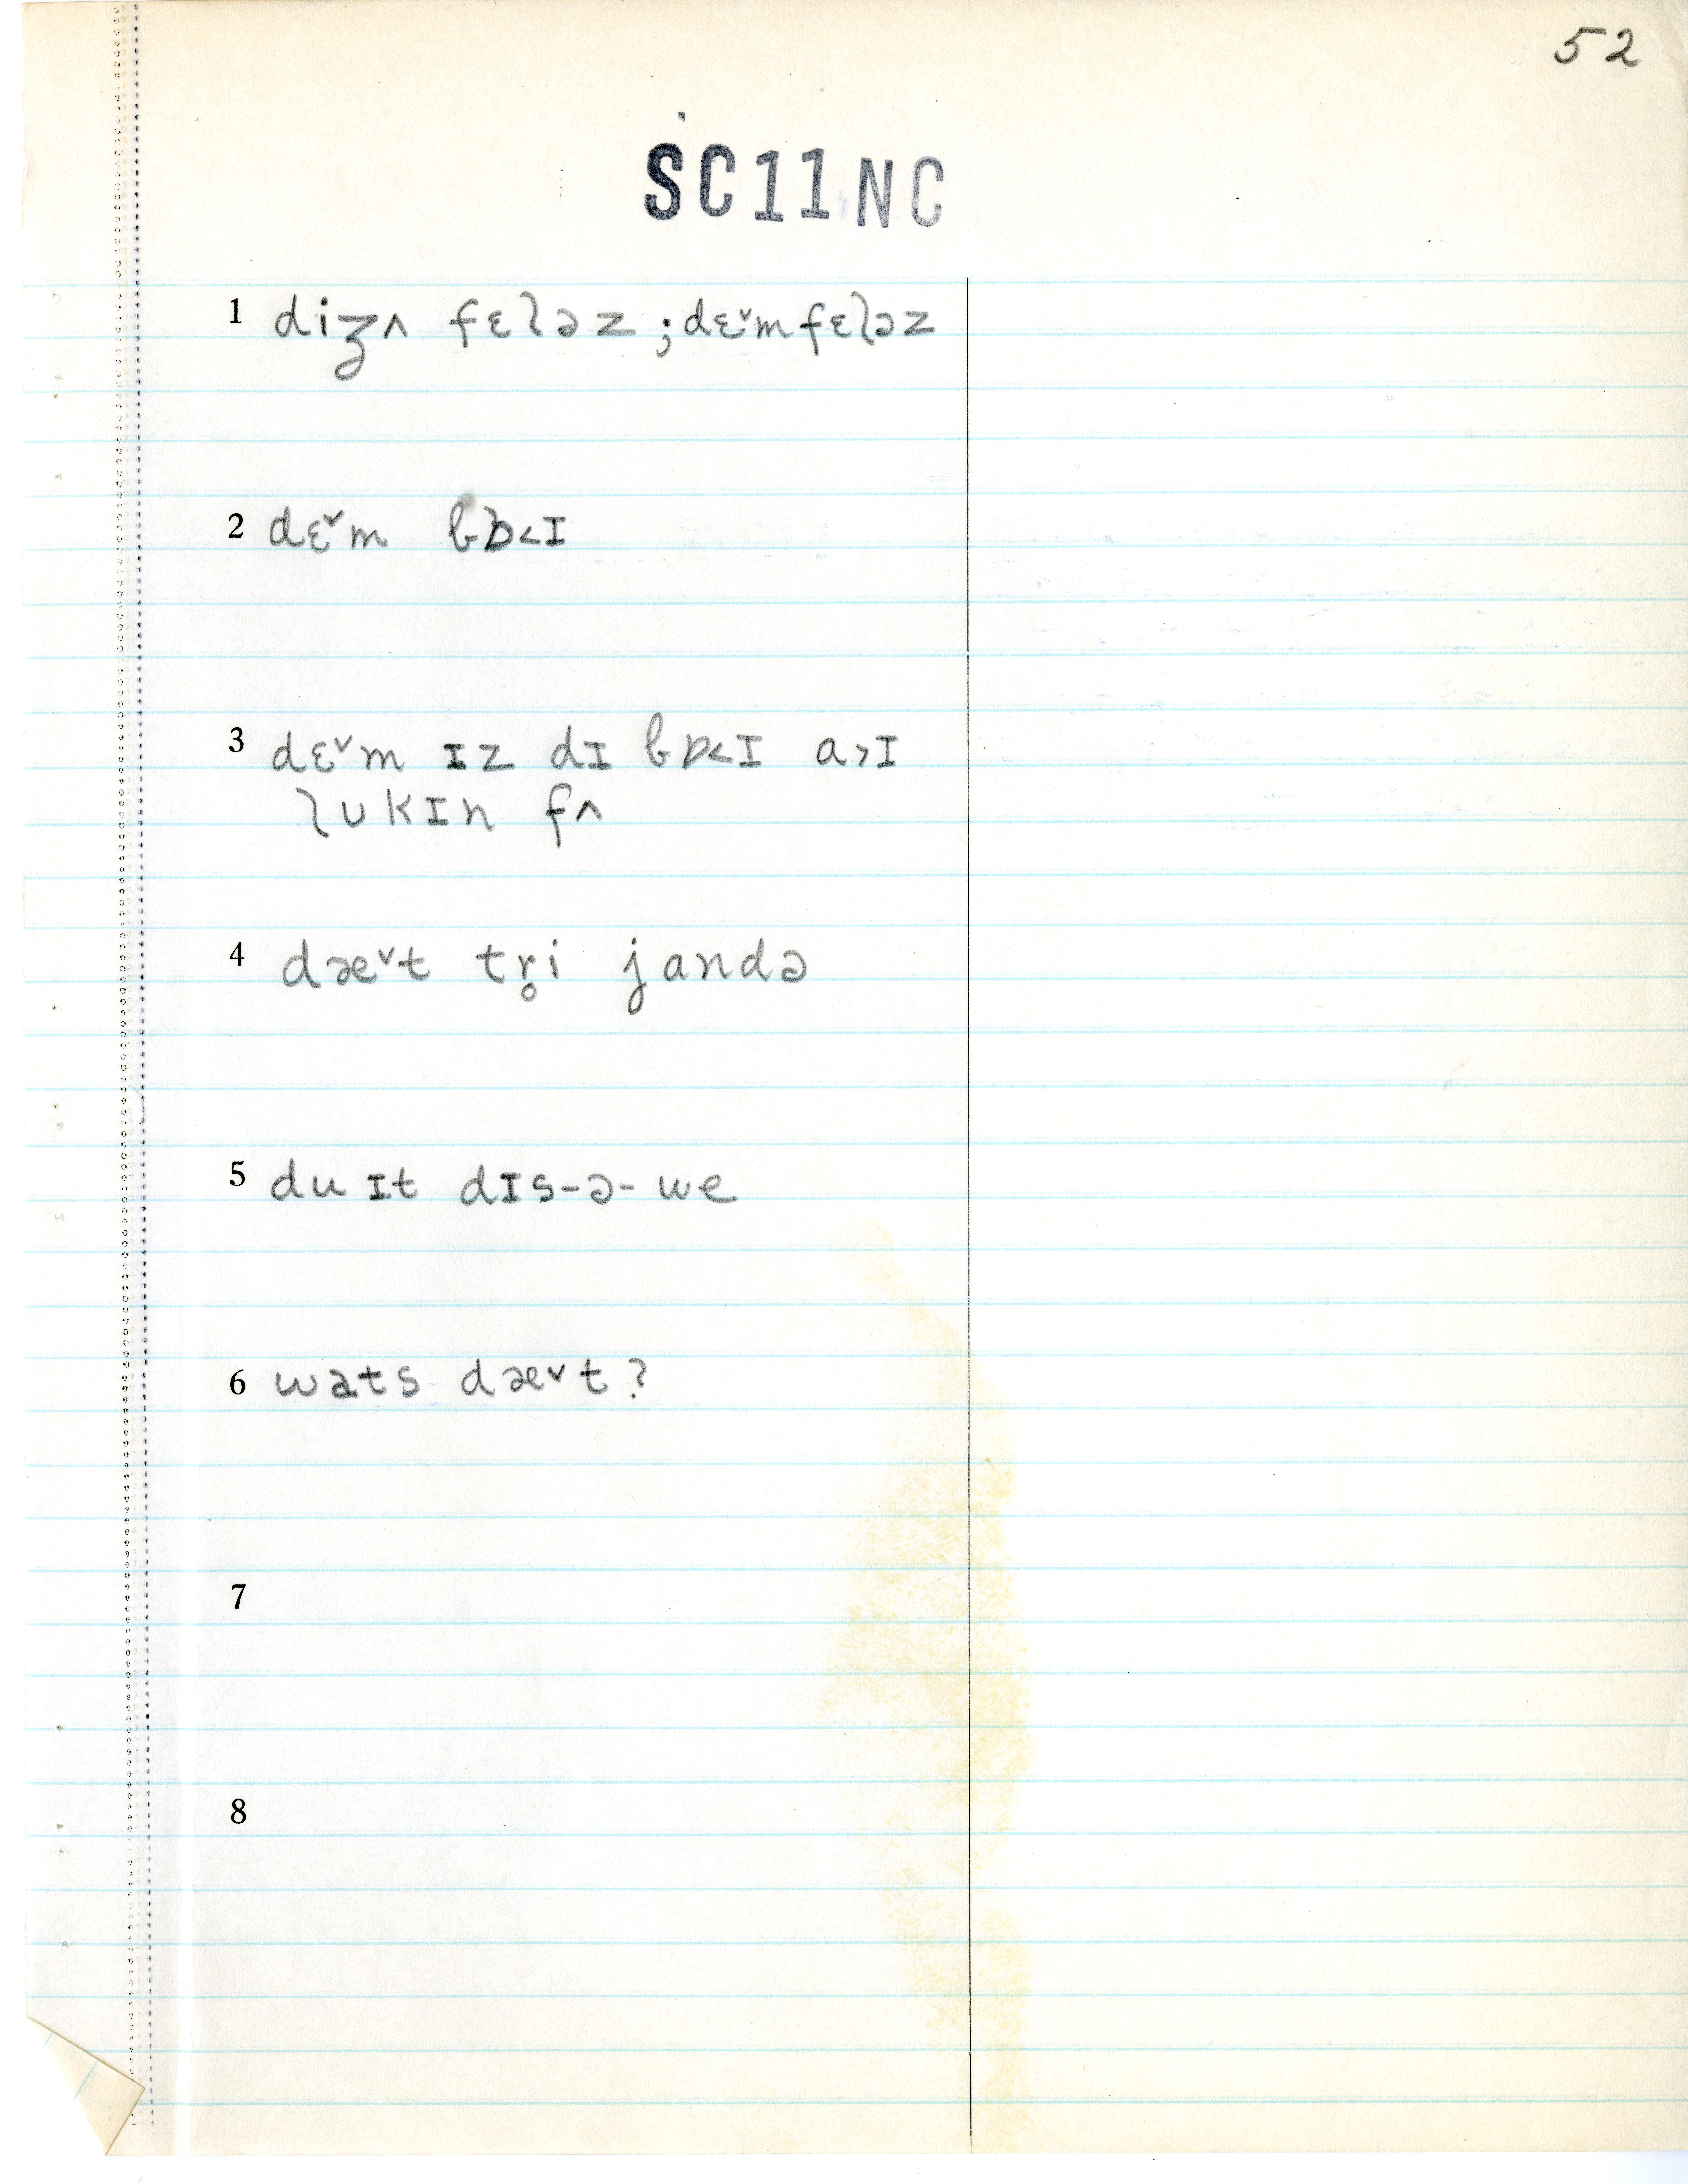 52
SC11NC
1 diʒʌ fɛləz ; dɛ˅m fɛləz
2 dɛ˅m bɒ<ɪ
3 dɛ˅m ɪz dɪ bɒ<ɪ a>ɪ
lʊkɪn fʌ
4 dæ˅t tr̥i jandə
5 du ɪt dɪs-ə-we
6 wats dæ˅t?
7
8